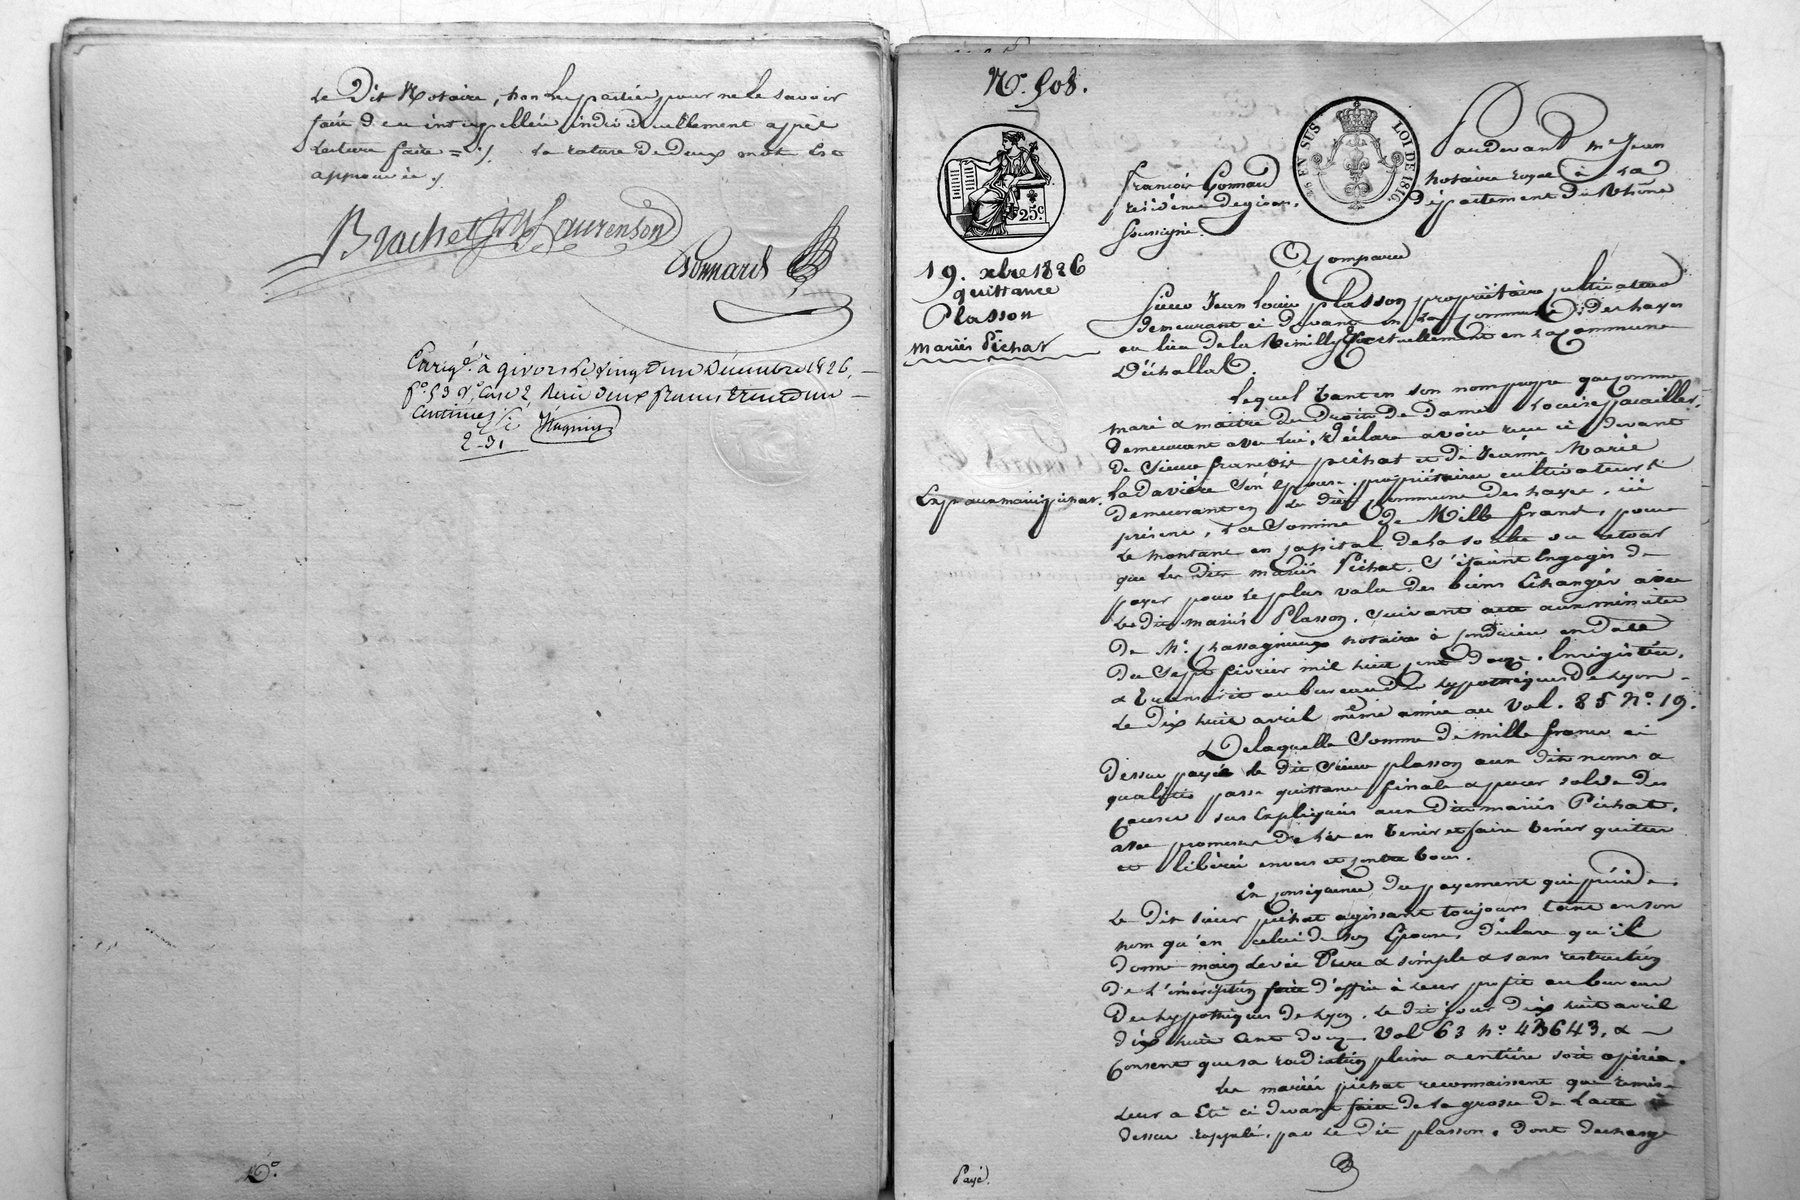 Le Dit Notaire, non les parties pour ne le savoir
faire de ce interpellées individuellement après
lecture faite =/. la rature de deux mots est
approuvée /.
Brachet Laurenson
Gonnard
Enrig.é à givors le vingt un Décembre 1826,
f.o 53 v.o, Case 2, Reçu deux francs trente un
Centimes
2-31
10.o
N.o 508.
25c
EN SUS
LOI DE 1816.
19. xbre 1826
quittance
Plasson
mariés Pichat
Exp aux mariés pichat.
Pardevant M.e Jean
françois Gonnard notaire royal à la
résidence de givors, département du Rhône
soussigné.
A Comparu
Sieur Jean Louis Plasson propriétaire cultivateur
demeurant ci devant en la commune des hayes
au lieu de la Rémilly & actuellement en la commune
D'échallat.
Lequel tant en son nom propre que comme
mari & maître des droits de Dame Louise
demeurant avec lui, Déclare avoir reçu ci devant
de sieur françois pichat et de Jeanne Marie
Ladavière son épouse, propriétaires cultivateurs
demeurant en la dite commune des hayes, ici
présent, la Somme de Mille francs, pour
le montant en capital de la soulte ou retour
que les dits mariés Pichat, s'étaient engagés de
payer pour le plus value des biens échangés avec
les dits mariés Plasson, suivant acte aux minutes
de M.e Chassagnieux notaire à Condrieu en date
du sept février mil huit cent douze, Enrigistré,
& transcrit au bureau des hypothèques de Lyon
le dix huit avril même année au Vol. 85 N.o 19.
De laquelle Somme de mille francs ci
dessus payée le dit sieur plasson aux dits noms &
qualités passe quittance finale & pour solde des
causes sus expliquées aux dits mariés Pichat,
avec promesse de les en tenir et faire tenir quittes
et libérés envers et contre tous.
En conséquence du payement qui précède
le dit sieur pichat agissant toujours tant en son
nom qu'en celui de son épouse, déclare qu'il
donne main levée pure & simple & sans restriction
de l'inscription faite d'office à leur profit au bureau
des hypothèques de Lyon, le dit jour dix huit avril
dix huit cent douze Vol 63 N.o 43643, &
consent que sa radiation pleine & entière soit opérée.
Les mariés pichat reconnaissent que remise
leur a été ci devant faite de la grosse de l'acte ci
dessus rappelé, par le dit plasson, dont décharge
Payé.